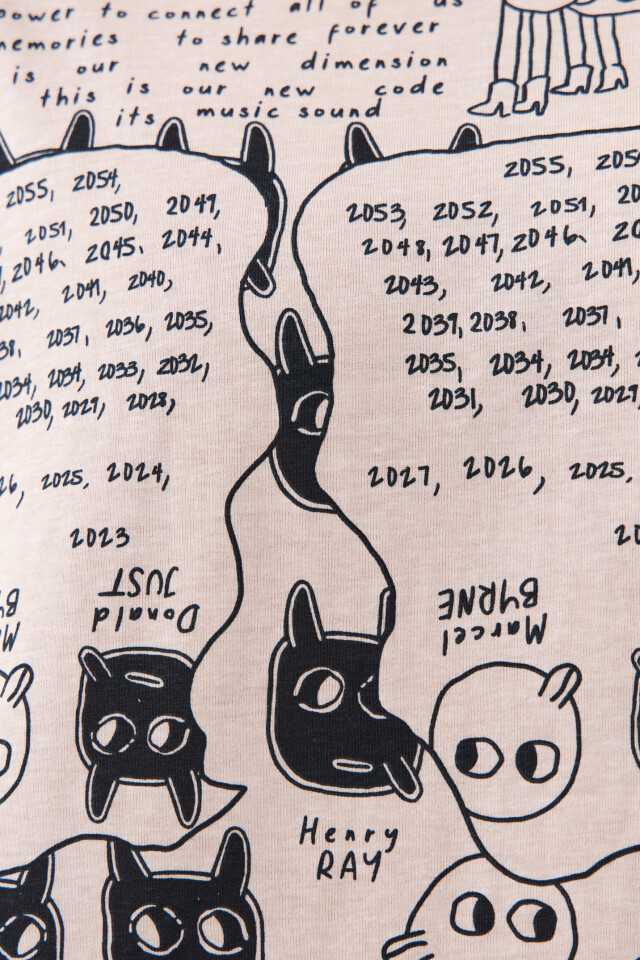 power to connect all of us
memories to share forever
is our new dimension
this is our new code
its music sound
2055, 2054,
2051, 2050, 2049,
2046, 2045, 2044,
2042, 2041, 2040,
2037, 2036, 2035,
2034, 2034, 2033, 2032,
2030, 2029, 2028,
2025, 2024,
2023
2055,
2053, 2052, 2051,
2048, 2047, 2046,
2043, 2042, 2041,
2039, 2038, 2037,
2035, 2034, 2034,
2031, 2030, 2029,
2027, 2026, 2025,
Donald
JUST
Marcel
BYRNE
Henry
RAY